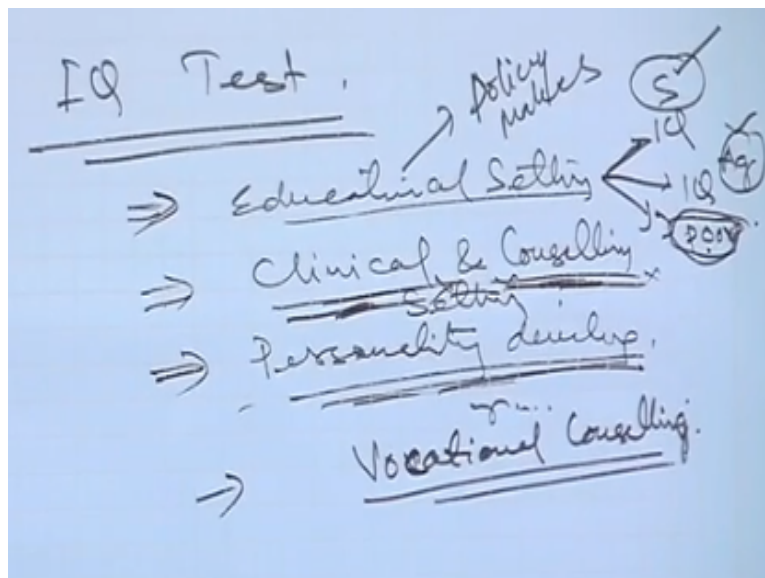 IQ Test.
Policy
makers
S
IQ
⇒ Educational Setting
IQ
Ag
poor
⇒ Clinical & Couselling
Setting
⇒ Personality develop.
→ Vocational Couselling.